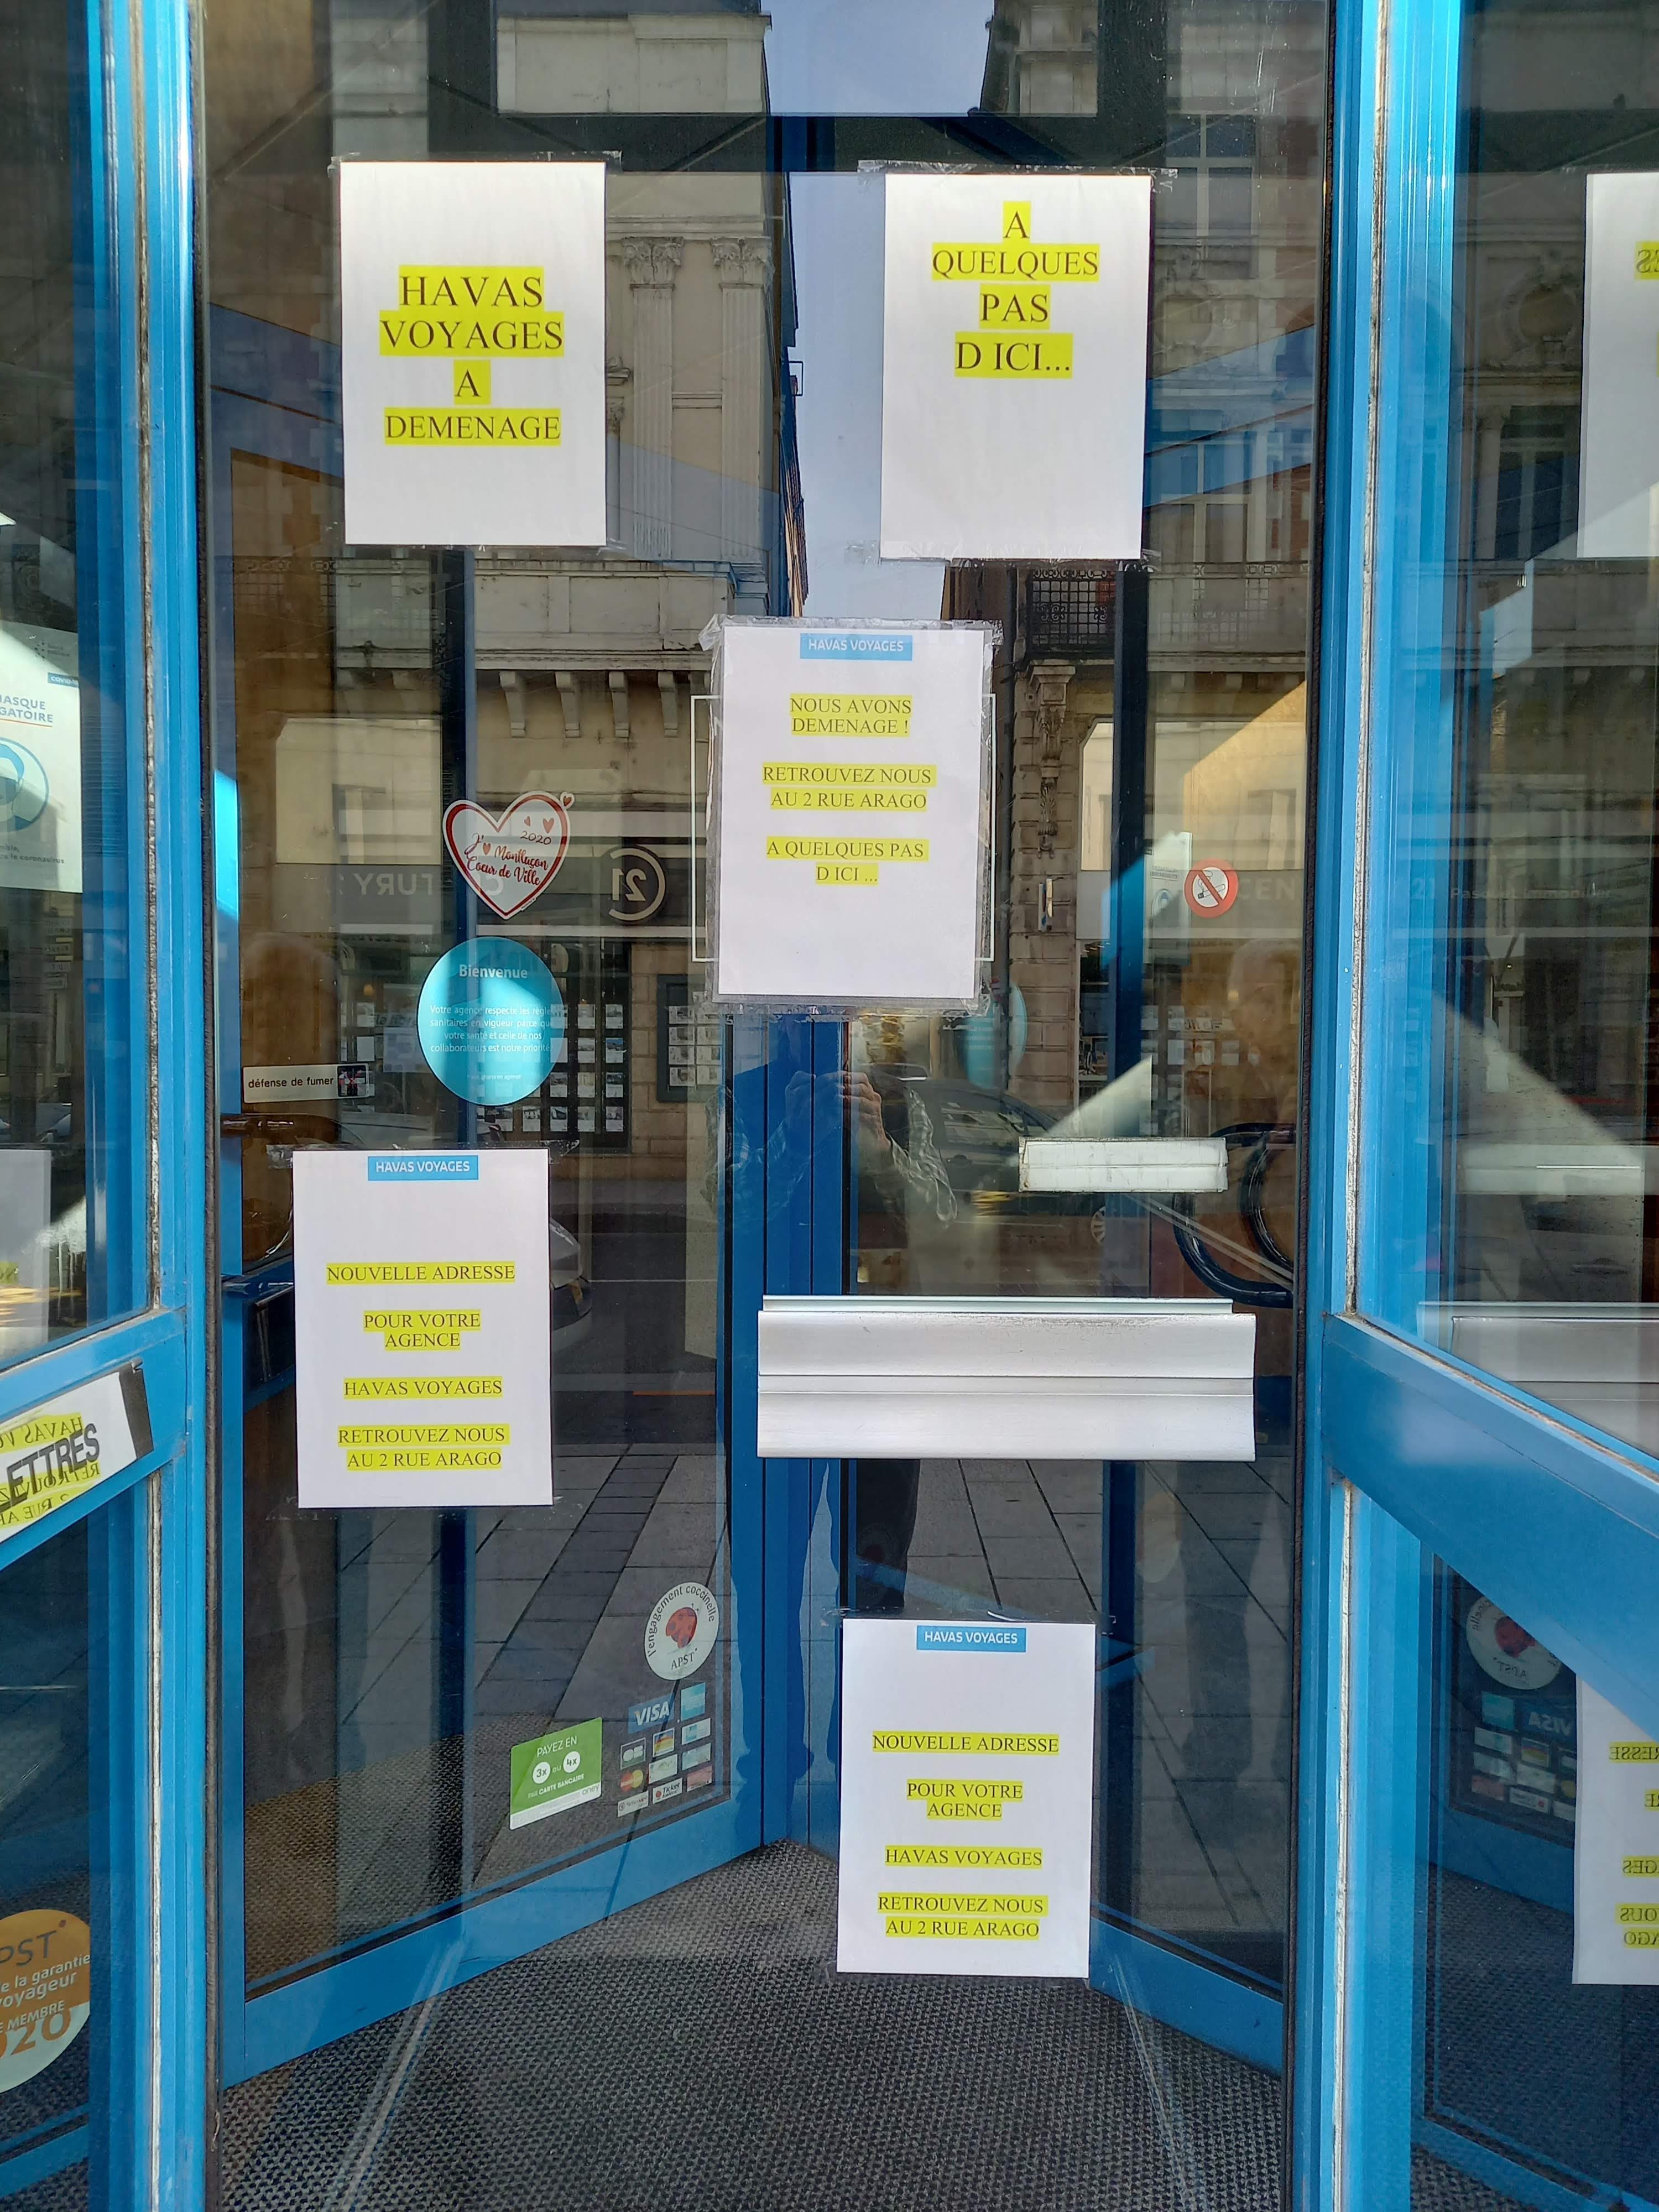 HAVAS
VOYAGES
A
DEMENAGE
A
QUELQUES
PAS
D ICI...
HAVAS VOYAGES
NOUS AVONS
DEMENAGE !
RETROUVEZ NOUS
AU 2 RUE ARAGO
A QUELQUES PAS
D ICI ...
MASQUE
2020
J'
Montluçon
Coeur de Ville
CENTURY 21
21
Bienvenue
Votre agence respecte les règles
sanitaires en vigueur parce que
votre santé et celle de nos
collaborateurs est notre priorité
défense de fumer
HAVAS VOYAGES
NOUVELLE ADRESSE
POUR VOTRE
AGENCE
HAVAS VOYAGES
RETROUVEZ NOUS
AU 2 RUE ARAGO
LETTRES
l'engagement coccinelle
APST
VISA
PAYEZ EN
3x ou 4x
PAR CARTE BANCAIRE
oney
HAVAS VOYAGES
NOUVELLE ADRESSE
POUR VOTRE
AGENCE
HAVAS VOYAGES
RETROUVEZ NOUS
AU 2 RUE ARAGO
APST
de la garantie
voyageur
MEMBRE
2020